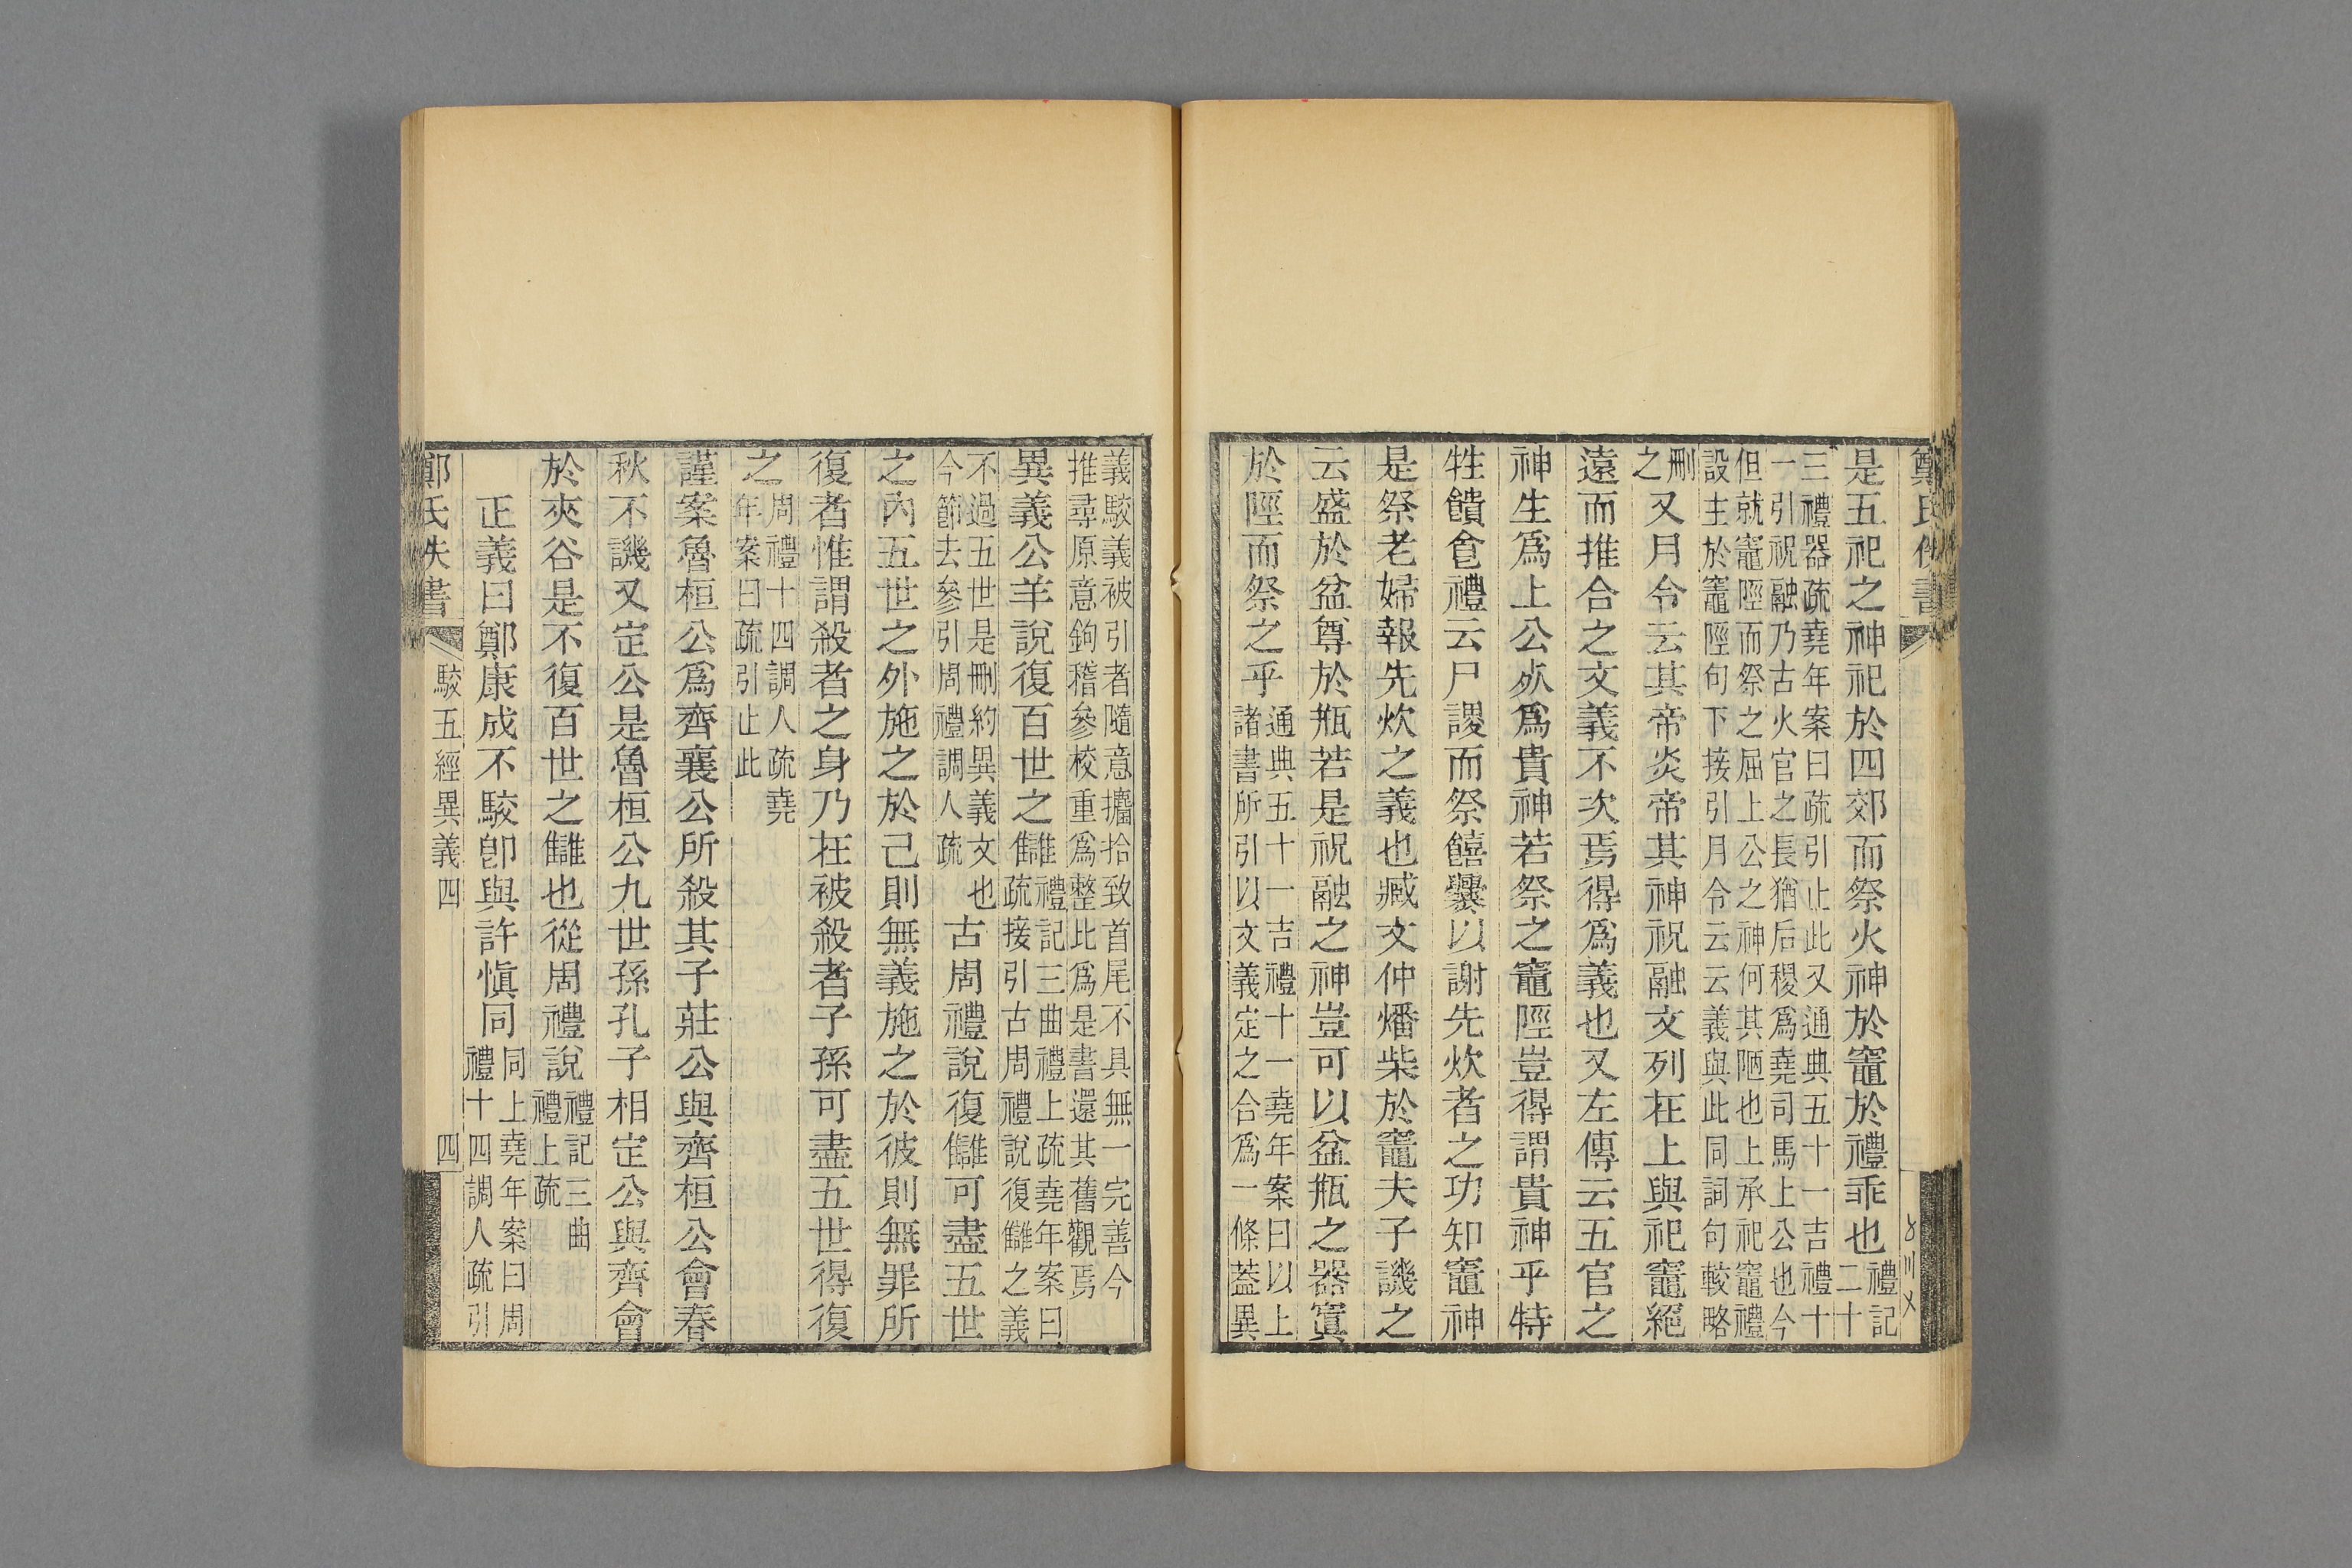 鄭氏佚書
是五祀之神祀於四郊而祭火神於竈於禮乖也禮記二十
三禮器疏堯年案曰疏引止此又通典五十一吉禮十
一引祝融乃古火官之長猶后稷爲堯司馬上公也今
但就竈陘而祭之屈上公之神何其陋也上承祀竈禮
設主於竈陘句下接引月令云云義與此同詞句較略
刪之又月令云其帝炎帝其神祝融文列在上與祀竈絕
遠而推合之文義不次焉得爲義也又左傳云五官之
神生爲上公死爲貴神若祭之竈陘豈得謂貴神乎特
牲饋食禮云尸謖而祭饎爨以謝先炊者之功知竈神
是祭老婦報先炊之義也臧文仲燔柴於竈夫子譏之
云盛於盆尊於瓶若是祝融之神豈可以盆瓶之器寘
於陘而祭之乎通典五十一吉禮十一堯年案曰以上
諸書所引以文義定之合爲一條蓋異
義駮義被引者隨意攟拾致首尾不具無一完善今
推尋原意鉤稽參校重爲整比爲是書還其舊觀焉
異義公羊說復百世之讎禮記三曲禮上疏堯年案曰
疏接引古周禮說復讎之義
不過五世是刪約異義文也
今節去參引周禮調人疏
古周禮說復讎可盡五世
之內五世之外施之於己則無義施之於彼則無罪所
復者惟謂殺者之身乃在被殺者子孫可盡五世得復
之周禮十四調人疏堯
年案曰疏引止此
謹案魯桓公爲齊襄公所殺其子莊公與齊桓公會春
秋不譏又定公是魯桓公九世孫孔子相定公與齊會
於夾谷是不復百世之讎也從周禮說禮記三曲
禮上疏
正義曰鄭康成不駮卽與許愼同同上堯年案曰周
禮十四調人疏引
鄭氏佚書
駮五經異義四
四